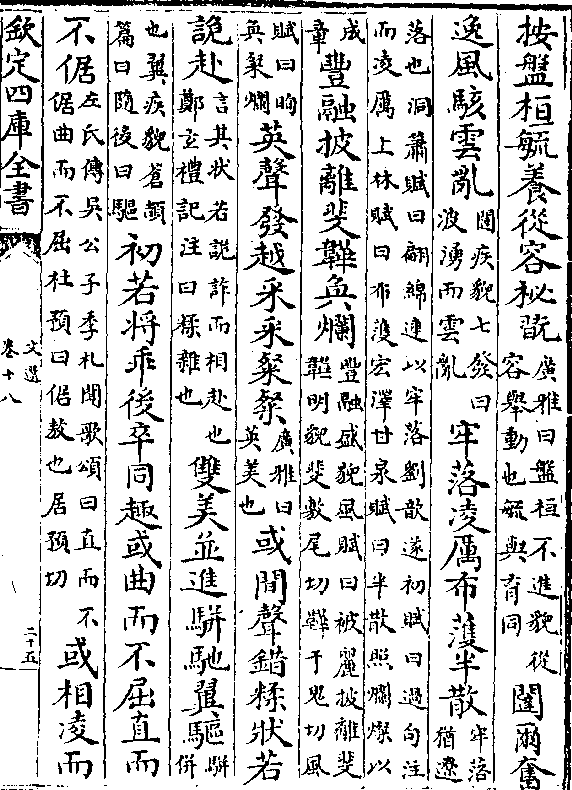 按盤桓毓養從容祕翫廣雅曰盤桓不進貌從容舉動也毓與育同闥爾奮
逸風駭雲亂闥疾貌七發曰波湧而雲亂牢落凌厲布濩半散牢落猶遼
落也洞簫賦曰翩綿連以牢落劉歆遂初賦曰過句注而凌厲上林賦曰布濩宏澤甘泉賦曰半散照爛燦以
成章豐融披離斐韡奐爛豐融盛貌風賦曰被麗披離斐韡明貌斐敷尾切韡于鬼切風
賦曰眴奐粲爛英聲發越采采粲粲廣雅曰英美也或間聲錯糅狀若
詭赴言其狀若詭詐而相赴也鄭玄禮記注曰糅雜也雙美並進駢馳翼驅駢併
也翼疾貌蒼頡篇曰隨後曰驅初若將乖後卒同趣或曲而不屈直而
不倨左氏傳吳公子季札聞歌頌曰直而不倨曲而不屈杜預曰倨敖也居預切或相凌而
欽定四庫全書
文選
卷十八
二十五